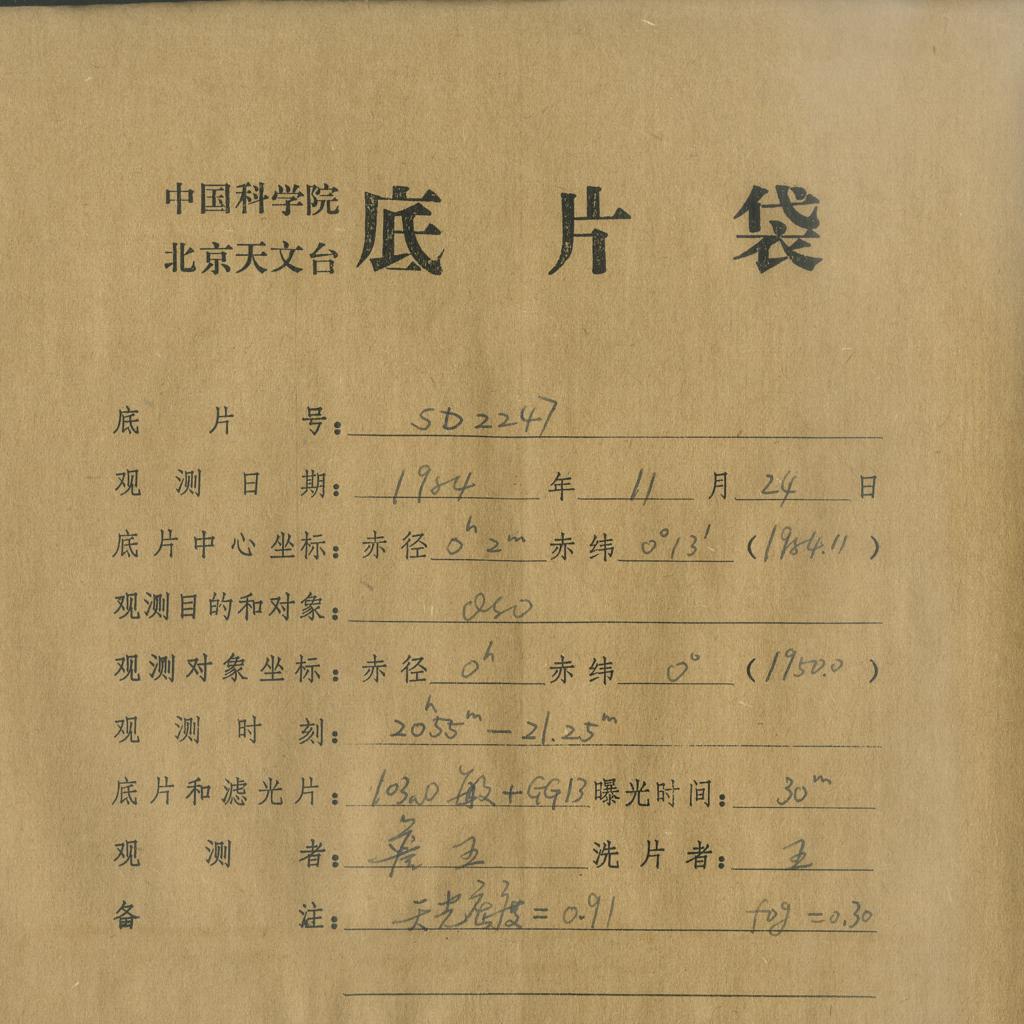 中国科学院
北京天文台
底片袋
底片号：SD2247
观测日期：1984年11月24日
底片中心坐标：赤径0ʰ2ᵐ赤纬0°13′（1984.11）
观测目的和对象：QSO
观测对象坐标：赤径0ʰ赤纬0°（1950.0）
观测时刻：20ʰ55ᵐ—21.25ᵐ
底片和滤光片：103aO敏+GG13曝光时间：30ᵐ
观测者：詹 王洗片者：王
备注：天光底度=0.91 fog=0.30